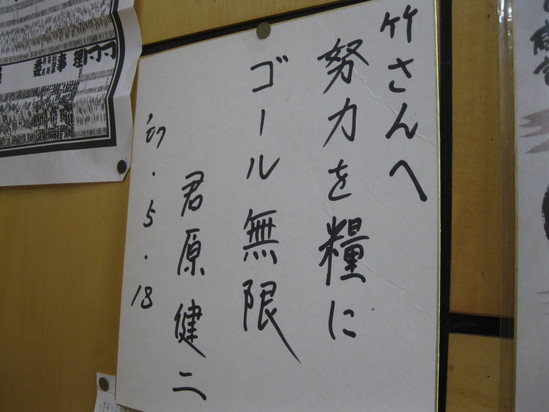 竹さんへ
努力を糧に
ゴール無限
君原健二
'07.5.18